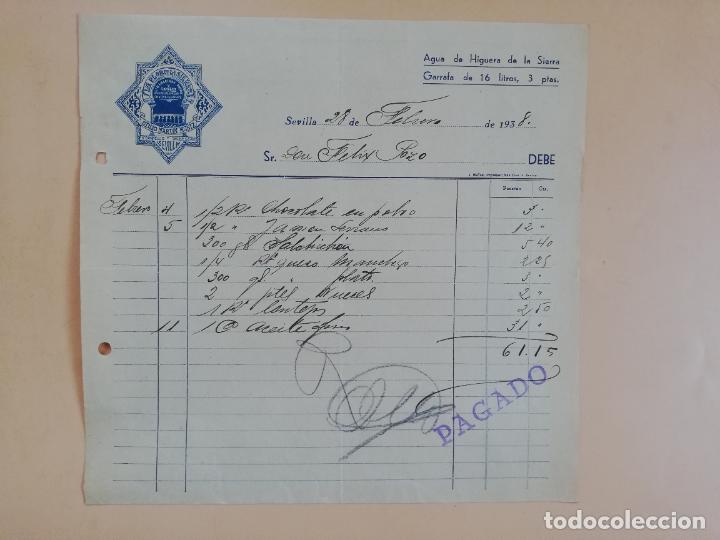 Agua de Higuera de la Sierra
Garrafa de 16 litros, 3 ptas.
SEVILLA
Sevilla 28 de Febrero de 1938.
Sr. Don Felix Pozo DEBE
Pesetas Cts.
Febrero 4 1/2 Kº Chocolate en polvo 3 "
5 1/2 " Jamon Serrano 12 "
300 gs Salchichon 5 40
1/4 Kº queso manchego 2 25
300 gs. " plato 3 "
2 ptes nueces 2 "
1 Kº lentejas 2 50
11 1 @ aceite fino 31 "
61.15
PAGADO
todocoleccion.net